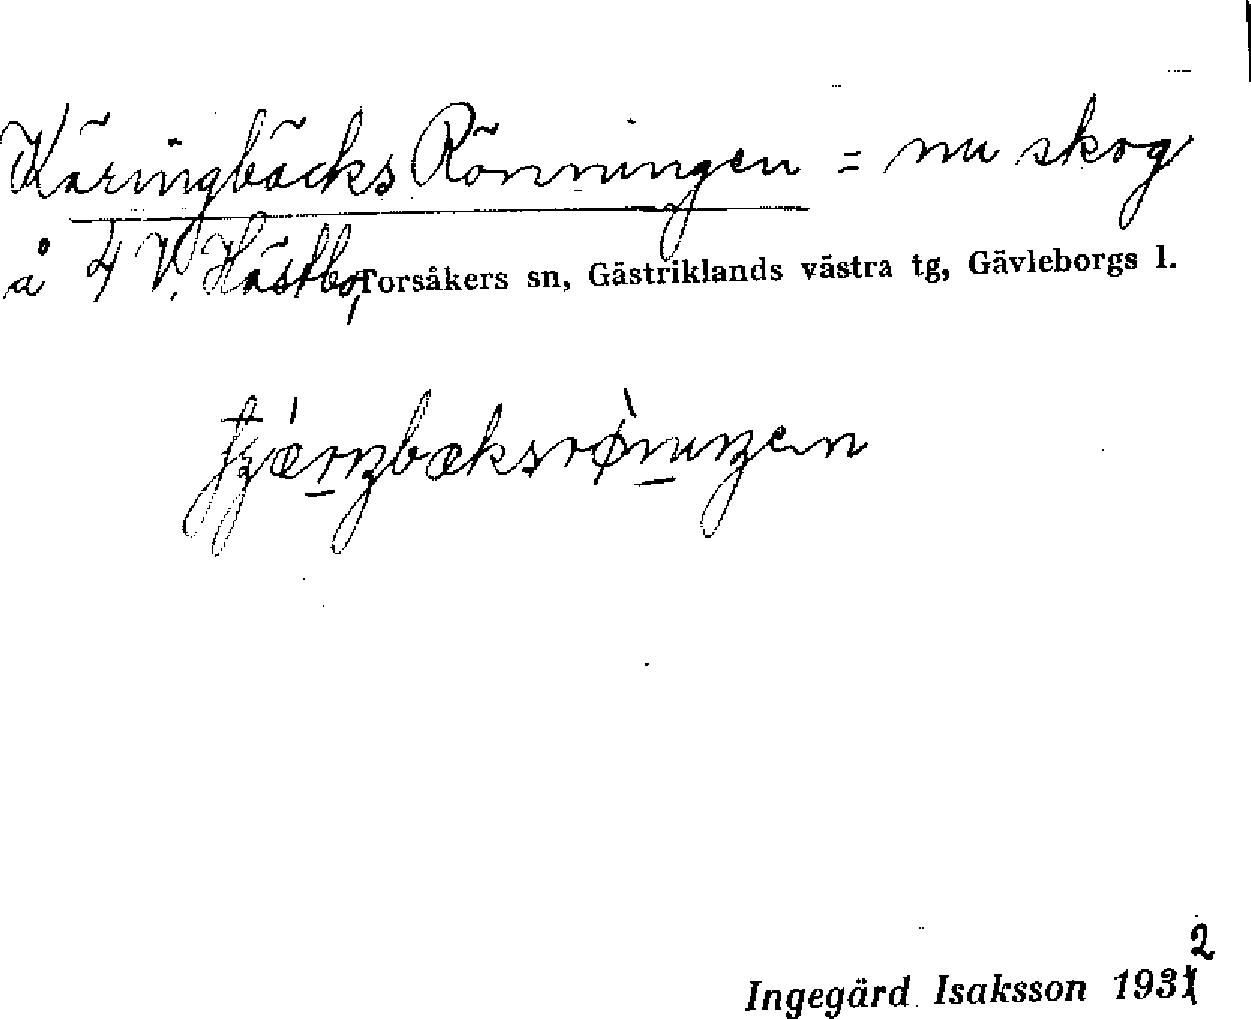 KäringbäcksRönningen = nu skog
å 4 V. Hästbo, Torsåkers sn, Gästriklands västra tg, Gävleborgs l.
Ingegärd Isaksson 1932